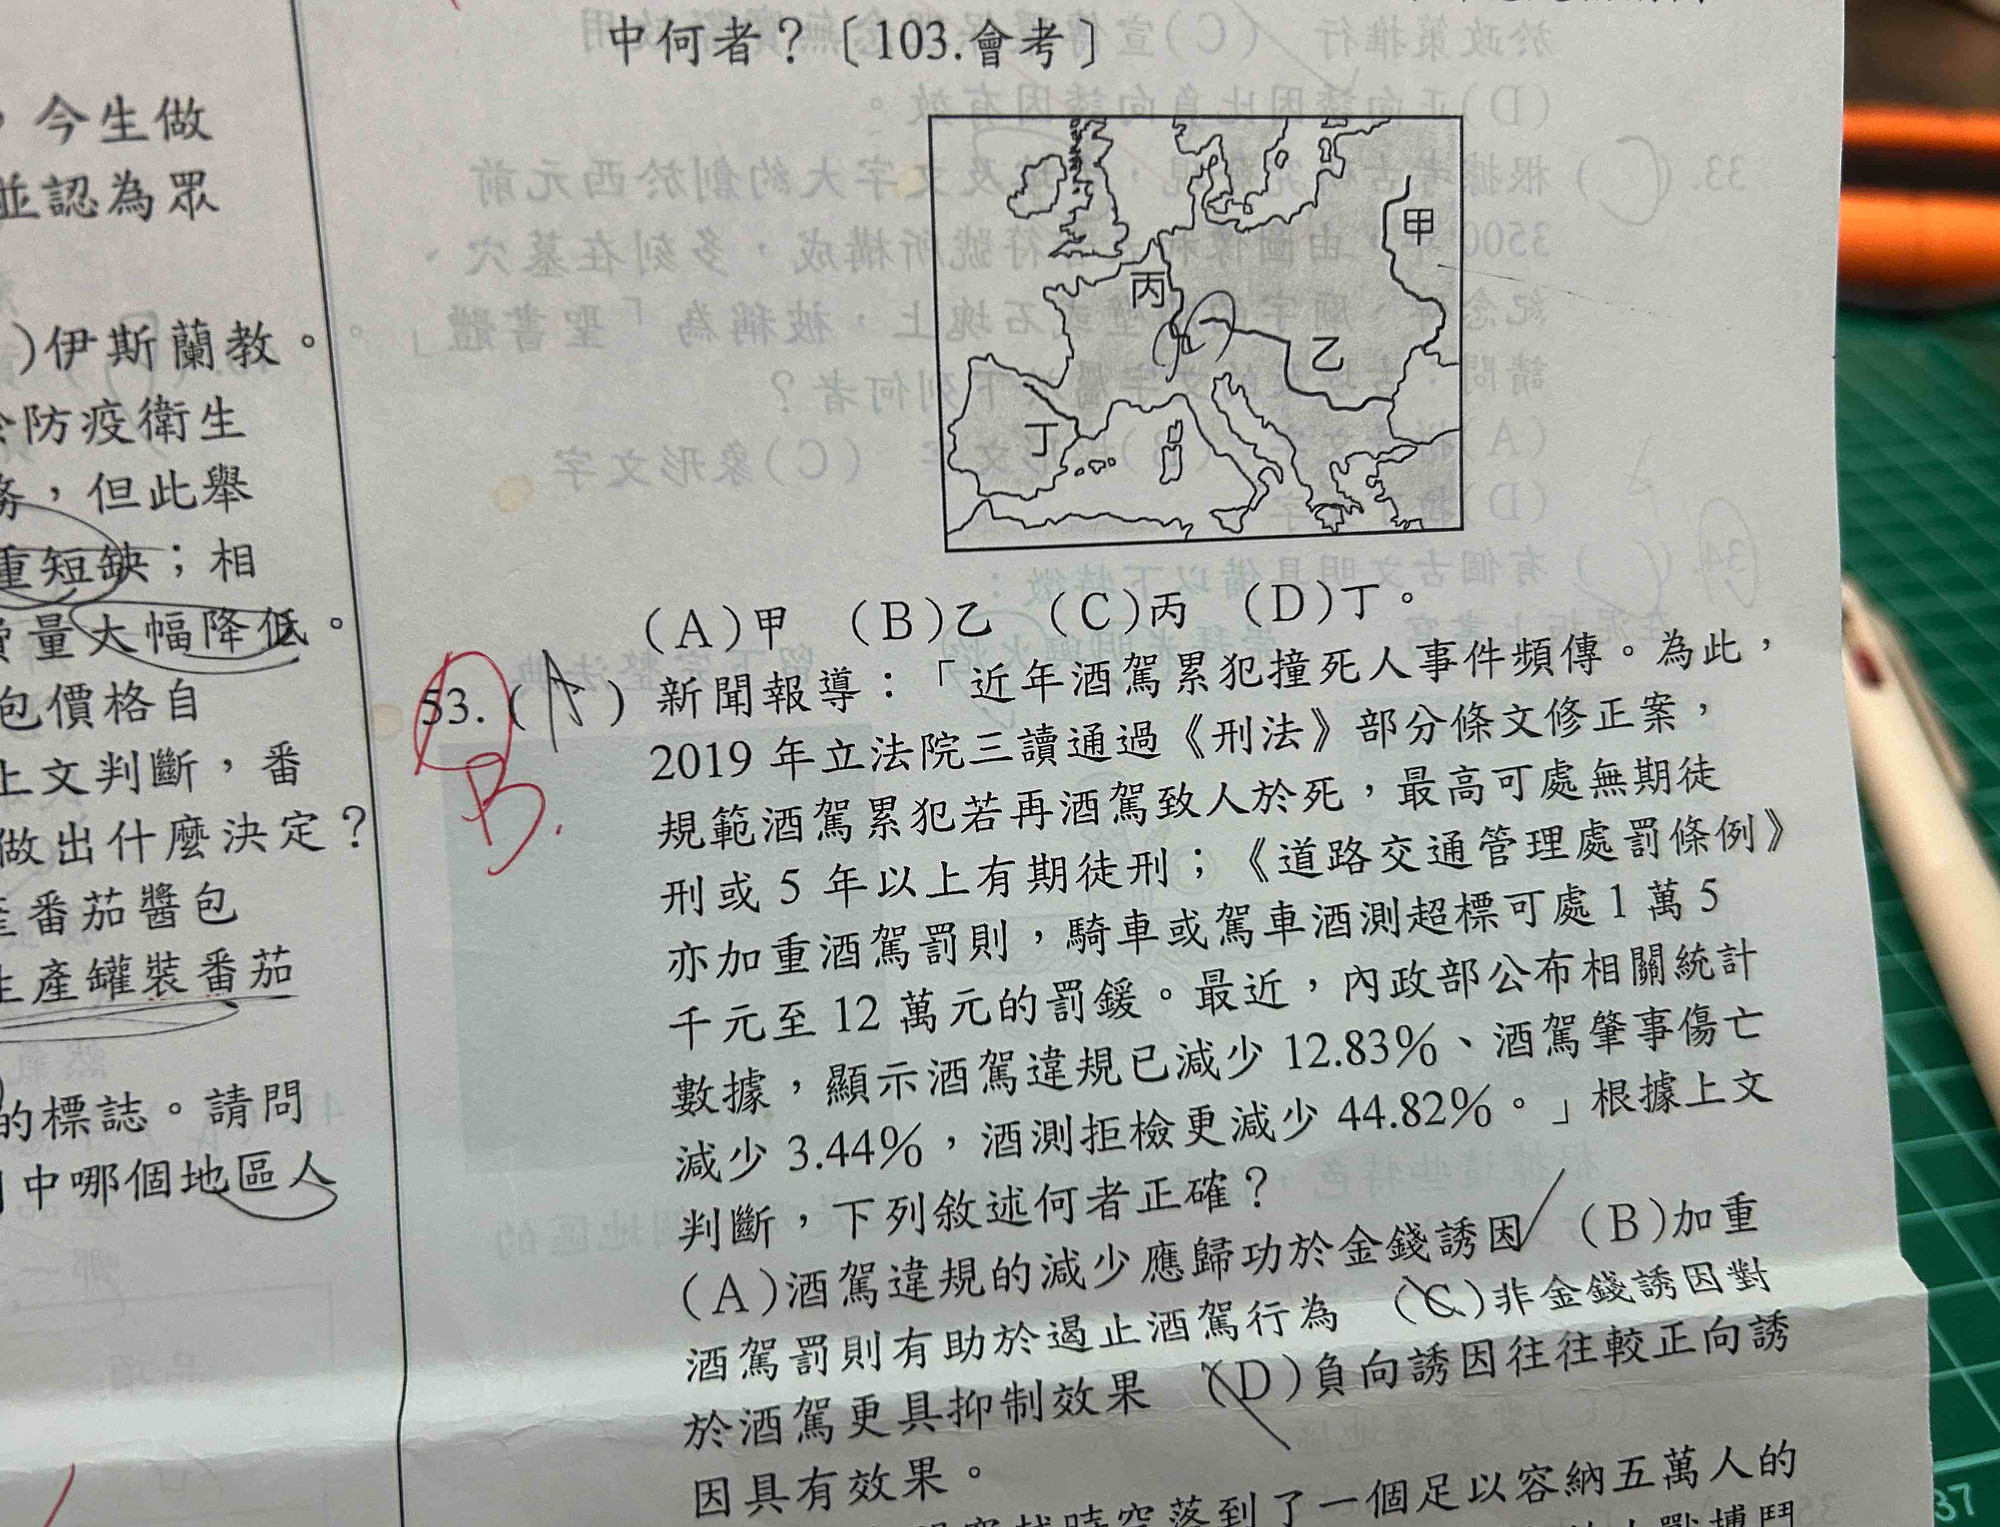 ，今生做
並認為眾
)伊斯蘭教。
於防疫衛生
務，但此舉
重短缺；相
量大幅降低。
包價格自
上文判斷，番
做出什麼決定？
產番茄醬包
生產罐裝番茄
的標誌。請問
中哪個地區人
中何者？〔103.會考〕
甲
丙
乙
丁
(A)甲 (B)乙 (C)丙 (D)丁。
53.(A)新聞報導：「近年酒駕累犯撞死人事件頻傳。為此，
B.
2019 年立法院三讀通過《刑法》部分條文修正案，
規範酒駕累犯若再酒駕致人於死，最高可處無期徒
刑或 5 年以上有期徒刑；《道路交通管理處罰條例》
亦加重酒駕罰則，騎車或駕車酒測超標可處 1 萬 5
千元至 12 萬元的罰鍰。最近，內政部公布相關統計
數據，顯示酒駕違規已減少 12.83%、酒駕肇事傷亡
減少 3.44%，酒測拒檢更減少 44.82%。」根據上文
判斷，下列敘述何者正確？
(A)酒駕違規的減少應歸功於金錢誘因 (B)加重
酒駕罰則有助於遏止酒駕行為 (C)非金錢誘因對
於酒駕更具抑制效果 (D)負向誘因往往較正向誘
因具有效果。
落到了一個足以容納五萬人的
37